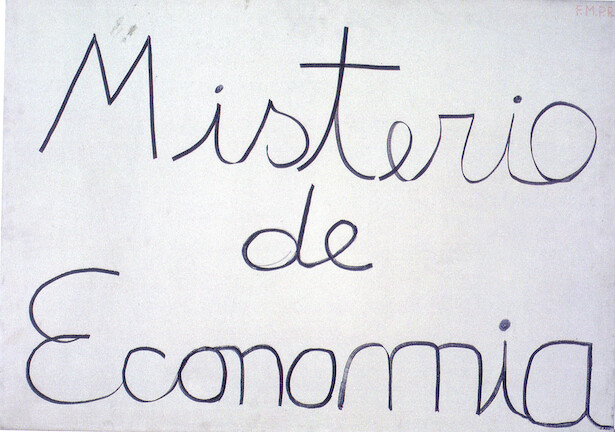 EMPR
Misterio
de
Economia